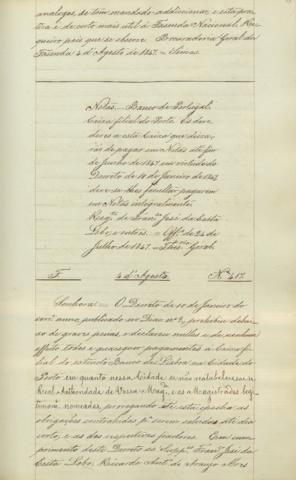 analogos, de tem mandado addicionar e esta pra-
tica é decerto mais util á Fazenda Nacional. Re-
queiro pois que se observe. Procuradoria Geral da
Fazenda 4 d'Agosto de 1847. =
Notas. Banco de Portugal.
Caixa filial do Porto. Os deve-
dores a esta Caixa que deixa-
ram de pagar em Notas até fim
de Junho de 1847 em virtude do
Decreto de 10 de Janeiro de 1847
deve-se-lhes facultar pagarem
em Notas integralmente
Reqto de Franco José da Costa
Lobo, e outros. = Offo de 24 de
Julho de 1847. = Geral
F. 4 d'Agosto No 417
Senhora = O Decreto de 10 de Janeiro do
corre anno, publicado no Diario no 9, prohibiu debai-
xo de graves penas, e declarou nullos e de nenhum
effeito todos e quaesquer pagamentos á Caixa fi-
lial do extincto Banco de Lisboa na Cidade do
Porto em quanto nessa Cidade se não restabelecesse a
Real Authoridade de Vossa Magde, e os Magistrados legi-
timos nomeados, prorogando até esta epocha as
obrigações contrahidas, já serem solvidas até
certo, e as dos respectivos fiadores. Em cum-
primento deste Decreto os Suppes Franco José da
Costa Lobo, Ricardo Anto de Araujo